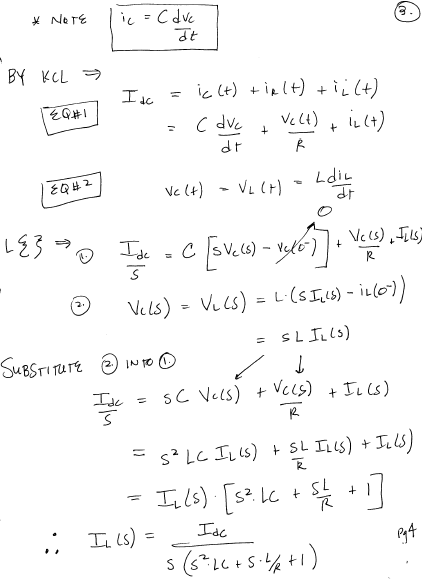 * NOTE i_c = C dv_c/dt
3.
BY KCL ⇒
EQ#1
I_dc = i_c(t) + i_R(t) + i_L(t)
= C dv_c/dt + v_c(t)/R + i_L(t)
EQ#2 v_c(t) = v_L(t) = L di_L/dt
0
L{} ⇒ 1. I_dc/s = C [sV_c(s) - v_c(0⁻)] + V_c(s)/R + I_L(s)
2. V_c(s) = V_L(s) = L·(sI_L(s) - i_L(0⁻))
= sL I_L(s)
SUBSTITUTE 2 INTO 1.
I_dc/s = sC V_c(s) + V_c(s)/R + I_L(s)
= s² LC I_L(s) + sL/R I_L(s) + I_L(s)
= I_L(s) · [s²·LC + sL/R + 1]
∴ I_L(s) = I_dc / s(s²·LC + s·L/R + 1)
pg4